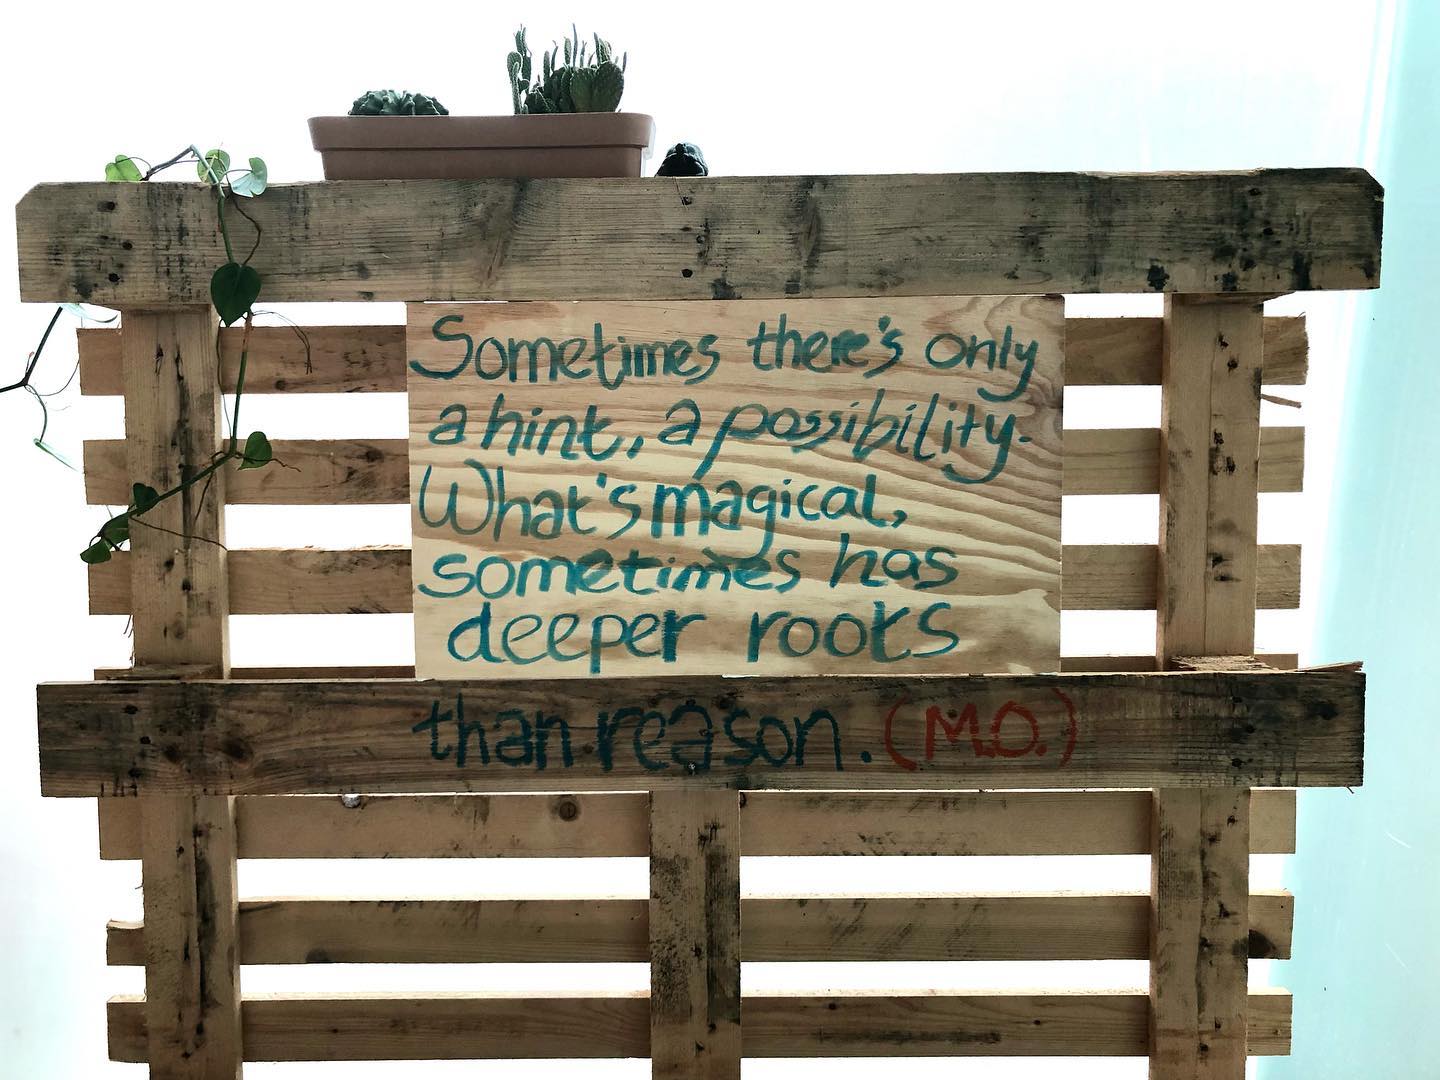 Sometimes there's only
a hint, a possibility.
What's magical,
sometimes has
deeper roots
than reason. (M.O.)